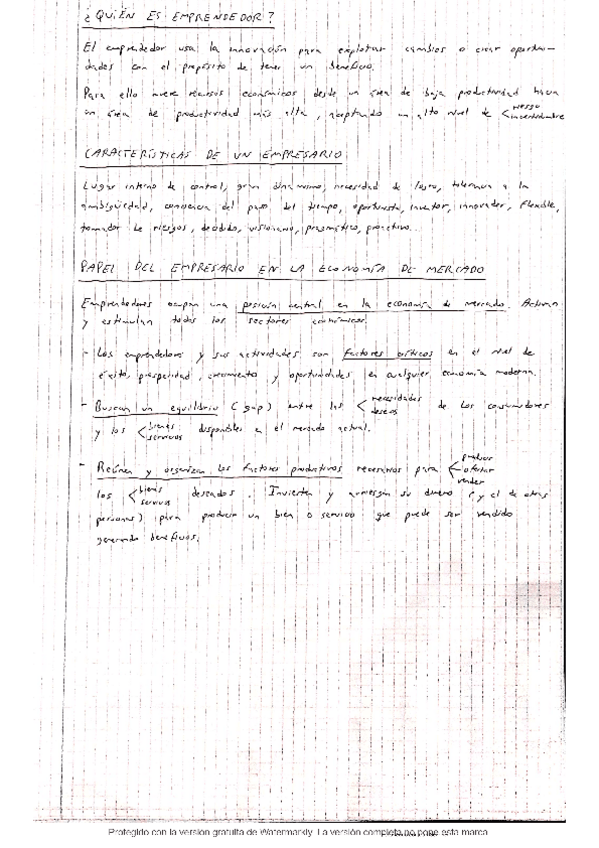 ¿QUIÉN ES EMPRENDEDOR?
El emprendedor usa la innovación para explotar cambios o crear oportuni-
dades con el propósito de tener un beneficio.
Para ello mueve recursos económicos desde un área de baja productividad hacia
un área de productividad más alta, aceptando un alto nivel de < riesgo
incertidumbre
CARACTERÍSTICAS DE UN EMPRESARIO
Lugar interno de control, gran dinamismo, necesidad de logro, tolerancia a la
ambigüedad, conciencia del paso del tiempo, oportunista, inventor, innovador, flexible,
tomador de riesgos, decidido, visionario, pragmático, proactivo...
PAPEL DEL EMPRESARIO EN LA ECONOMÍA DE MERCADO
Emprendedores ocupan una posición central en la economía de mercado. Activan
y estimulan todos los sectores económicos.
- Los emprendedores y sus actividades son factores críticos en el nivel de
éxito, prosperidad, crecimiento y oportunidades en cualquier economía moderna.
- Buscan un equilibrio (gap) entre las < necesidades
deseos
de los consumidores
y los < bienes
servicios
disponibles en el mercado actual.
- Reúnen y organizan los factores productivos necesarios para < producir
ofertar
vender
los < bienes
servicios
deseados. Invierten y arriesgan su dinero (y el de otras
personas) para producir un bien o servicio que puede ser vendido
generando beneficios.
Protegido con la versión gratuita de Watermarkly. La versión completa no pone esta marca.